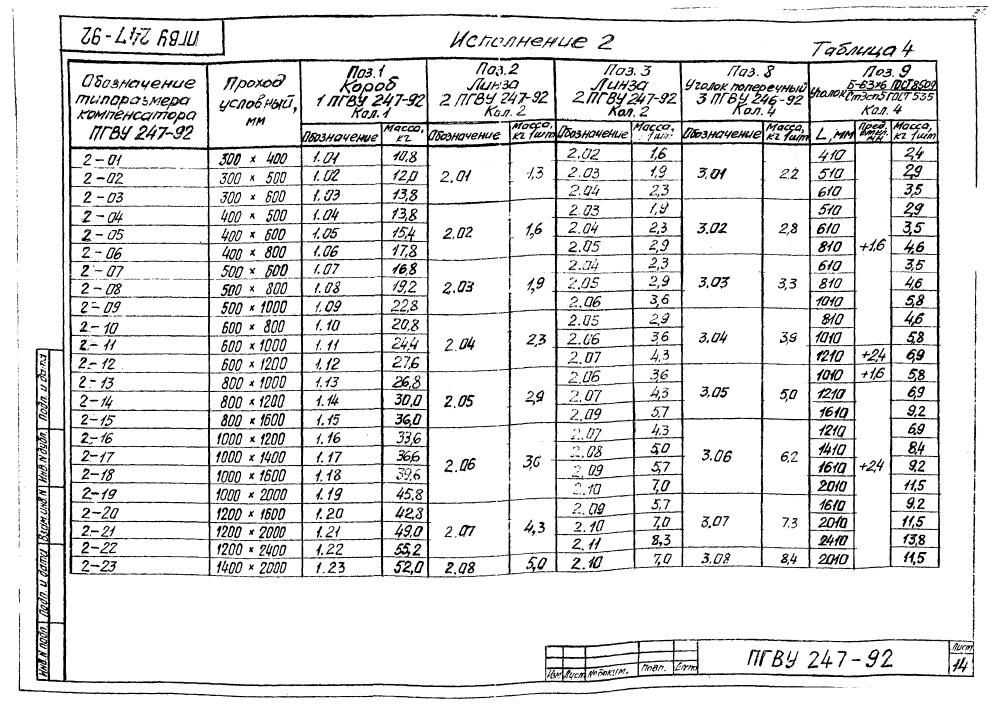 ПГВУ 247-92
Исполнение 2
Таблица 4
Обозначение типоразмера компенсатора ПГВУ 247-92
Проход условный, мм
Поз.1 Короб 1 ПГВУ 247-92 Кол.1
Поз.2 Линза 2 ПГВУ 247-92 Кол. 2
Поз. 3 Линза 2 ПГВУ 247-92 Кол. 2
Поз. 8 Уголок поперечный 3 ПГВУ 246-92 Кол. 4
Поз. 9 Уголок Б-63×6 ГОСТ 8509 Ст3сп5 ГОСТ 535 Кол. 4
Обозначение Масса, кг Обозначение Масса, кг 1 шт Обозначение Масса, 1 шт. Обозначение Масса, кг 1 шт L, мм Пред. откл. мм Масса, кг 1 шт
2-01 300 × 400 1.01 10,8 2.01 1,3 2.02 1,6 3.01 2,2 410 +1,6 2,4
2-02 300 × 500 1.02 12,0 2.03 1,9 510 2,9
2-03 300 × 600 1.03 13,8 2.04 2,3 610 3,5
2-04 400 × 500 1.04 13,8 2.02 1,6 2.03 1,9 3.02 2,8 510 2,9
2-05 400 × 600 1.05 15,4 2.04 2,3 610 3,5
2-06 400 × 800 1.06 17,8 2.05 2,9 810 4,6
2-07 500 × 600 1.07 16,8 2.03 1,9 2.04 2,3 3.03 3,3 610 3,5
2-08 500 × 800 1.08 19,2 2.05 2,9 810 4,6
2-09 500 × 1000 1.09 22,8 2.06 3,6 1010 5,8
2-10 600 × 800 1.10 20,8 2.04 2,3 2.05 2,9 3.04 3,9 810 4,6
2-11 600 × 1000 1.11 24,4 2.06 3,6 1010 5,8
2-12 600 × 1200 1.12 27,6 2.07 4,3 1210 +2,4 6,9
2-13 800 × 1000 1.13 26,8 2.05 2,9 2.06 3,6 3.05 5,0 1010 +1,6 5,8
2-14 800 × 1200 1.14 30,0 2.07 4,3 1210 +2,4 6,9
2-15 800 × 1600 1.15 36,0 2.09 5,7 1610 9,2
2-16 1000 × 1200 1.16 33,6 2.06 3,6 2.07 4,3 3.06 6,2 1210 6,9
2-17 1000 × 1400 1.17 36,6 2.08 5,0 1410 8,4
2-18 1000 × 1600 1.18 39,6 2.09 5,7 1610 9,2
2-19 1000 × 2000 1.19 45,8 2.10 7,0 2010 11,5
2-20 1200 × 1600 1.20 42,8 2.07 4,3 2.09 5,7 3.07 7,3 1610 9,2
2-21 1200 × 2000 1.21 49,0 2.10 7,0 2010 11,5
2-22 1200 × 2400 1.22 55,2 2.11 8,3 2410 13,8
2-23 1400 × 2000 1.23 52,0 2.08 5,0 2.10 7,0 3.08 8,4 2010 11,5
Инв.№ подл. Подп. и дата Взам.инв.№ Инв.№ дубл. Подп. и дата
Изм Лист № докум. Подп. Дата
ПГВУ 247-92
Лист
14